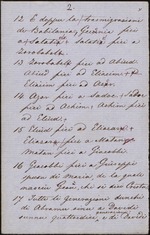 2
12 E doppo la transmigrazione
di Babilonia, Geconia fici a
Salatieli. Salatieli fici a
Zorobabeli
13 Zorobabeli fici ad Abiud.
Abiud fici ad Eliacim.
Eliacim fici ad Azor.
14 Azor fici a Sadoc. Sadoc
fici ad Achim. Achim fici
ad Eliud.
15 Eliud fici ad Eleazar.
Eleazar fici a Matan.
Matan fici a Giacobbi
16 Giacobbi fici a Giuseppi
spusu di Maria di la quali
nasciu Gesù, chi si dici Cristu
17 Tutti li generazioni dunchi
di Abramu sinu a Davidi
sunnu quattordici, e di Davidi